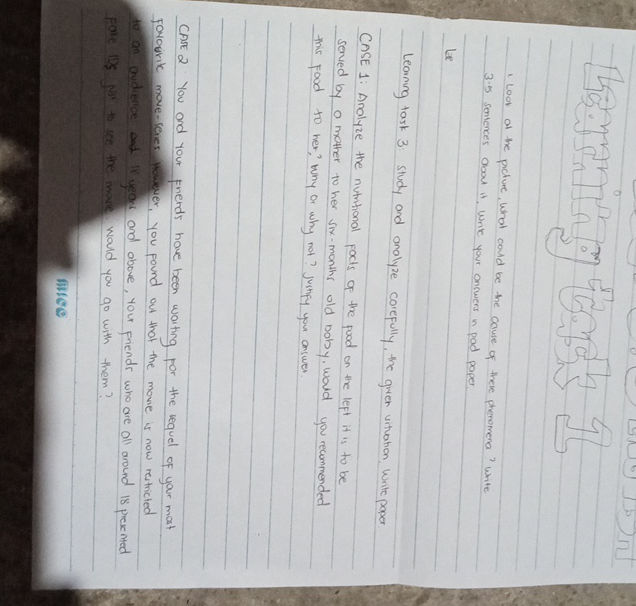 Learning task 1
1. Look at the picture, what could be the cause of these phenomena? write
3-5 sentences about it, write your answers in pad paper.
Le
Learning task 3. study and analyze carefully, the given situation. write paper
CASE 1: Analyze the nutritional facts of the food on the left it is to be
served by a mother to her six-months old baby, would you recommended
this food to her? why or why not? Justify your answer.
CASE 2 You and your friends have been waiting for the sequel of your most
favourite movie-series however, you found out that the movie is now restricted
to an audience 18 years and above, your friends who are all around 18 presented
to see the movie would you go with them?